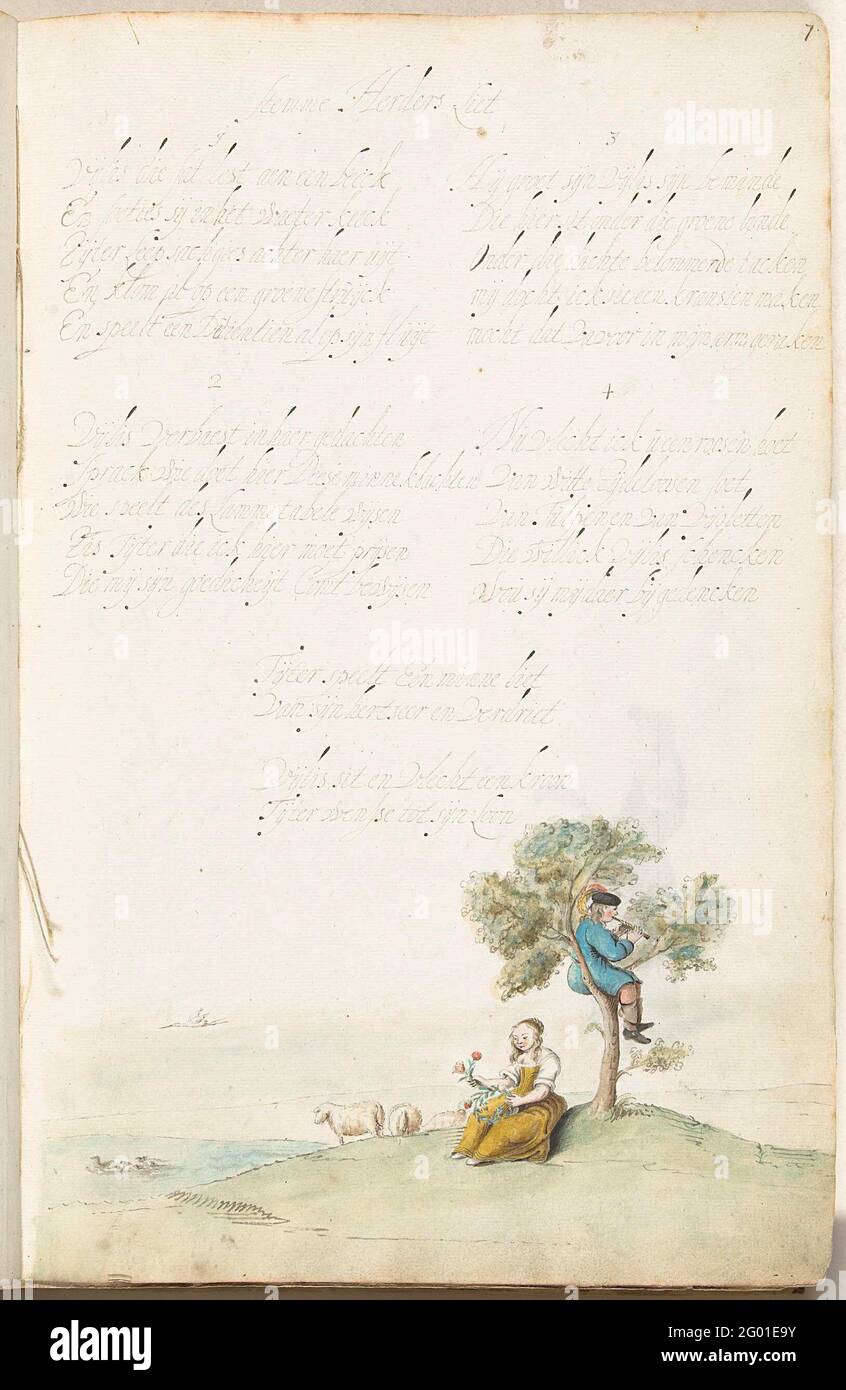 7
stemme Herders Liet
1
Vylis die sat lest aen een beeck
En soeties sy in het Waeter keeck
Tyter seep sachgies achter haer uyt
En klom op een groene struyck
En speelt een Deuontien al op syn fluyt
2
Vylis Verbaest in haer gedachten
Sprack Wie doot hier Dese minne klachten
Wie speelt des Lammetabele Wysen
Tis Tyter die ick hier moet prysen
Die my syn goetheyt Comt beWysen
3
Hy groet syn Vylis syn beminde
Die hier sit onder die groene
Onder die dichte belommerde tacken
my docht ick sie een kransien maken
mocht dat Vavoor in myn arm geraken
4
Nu vlecht ick u een roosen hoet
Van Witte Tydeloosen soet
Van Tulpen en van Vyoletten
Die Wil ick Vylis schencken
Wou sy my daer by gedencken
Tyter speelt Een minne liet
Van syn hertseer en Verdriet
Vylis sit en Vlecht een kroon
Tyter Wensse tot syn Loon
alamy
Image ID: 2G01E9Y
www.alamy.com